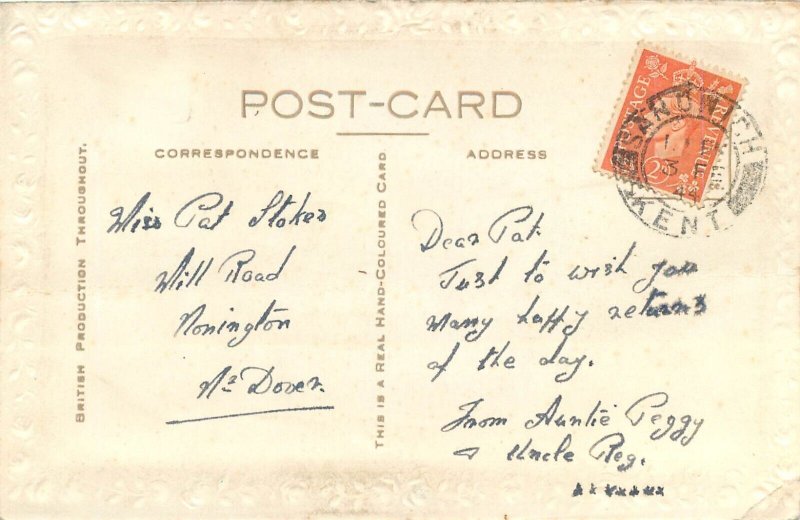 POST-CARD
CORRESPONDENCE
ADDRESS
BRITISH PRODUCTION THROUGHOUT.
THIS IS A REAL HAND-COLOURED CARD.
Miss Pat Stokes
Mill Road
Nonington
Nr Dover.
Dear Pat.
Just to wish you
Many happy returns
of the day.
From Auntie Peggy
& Uncle Reg.
xxxxxxx
POSTAGE
REVENUE
SANDWICH
KENT